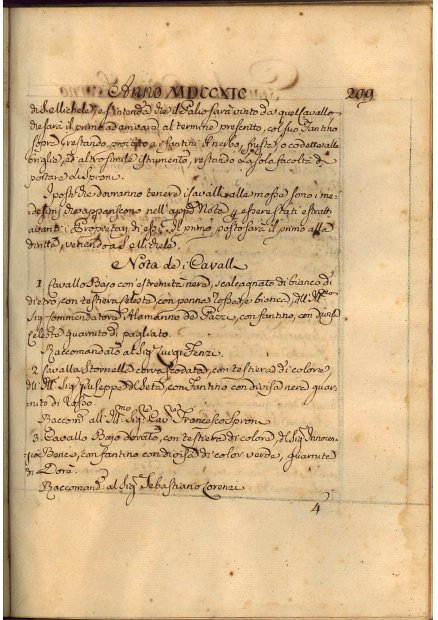 Anno MDCCXIC 299
di S. Michele, e s'intenda che il Palio sarà vinto da quel Cavallo
che sarà il primo ad arrivare al termine prescritto, col suo Fantino
sopra, restando proibito a' Fantini il Nerbo, frusta, o codetta alle
briglie, ad altro simile istrumento, restando la sola facoltà di
portare di sproni.
I posti che dovranno tenere i Cavalli alle mosse sono i me-
desimi che appariscono nell' Nota, e essere stati estratti
avanti i di essi. Il primo posto sarà il primo alla
diritta, venendo a S. Michele.
Nota de i Cavalli
1 Cavallo Bajo con estremità nera, scalcagnato di bianco di
dietro, con testiera celeste, con penne bianca, dell' Ill.mo
Sig. Commendatore Alamanno de Pazzi, con fantino, con
Celeste guarnito di pagliato.
Raccomandato al Sig.re Luigi Tenzi.
2. Cavalla Stornella cor va scodata, con testiera di colore
dell' Ill.mo Sig. Giuseppe del Seta, con Fantino con divisa nera guar-
nito di
Raccom. all' Ill.mo Sig.re Cav.re Francesco Sproni.
3. Cavallo Bajo dorato, con testiera di colore, del Sig.re Innocen-
zio Bence, con fantino con divisa di color verde, guarnita
di d'oro.
Raccomand. al Sig.re Sebastiano Lorenzi.
4